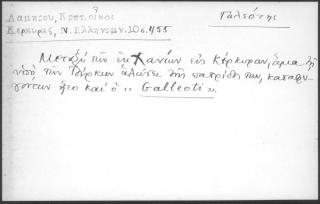 Λαμπρου, Κρητ. οικοι Γαλεότης
Κερκυρας, Ν. Ελληνομν. 10 σ. 455
Μεταξύ των εκ Χανίων εις Κέρκυραν, άμα τη
υπό των Τούρκων αλώσει της πατρίδος των, καταφυ-
γόντων ήτο και ο "Galleoti".